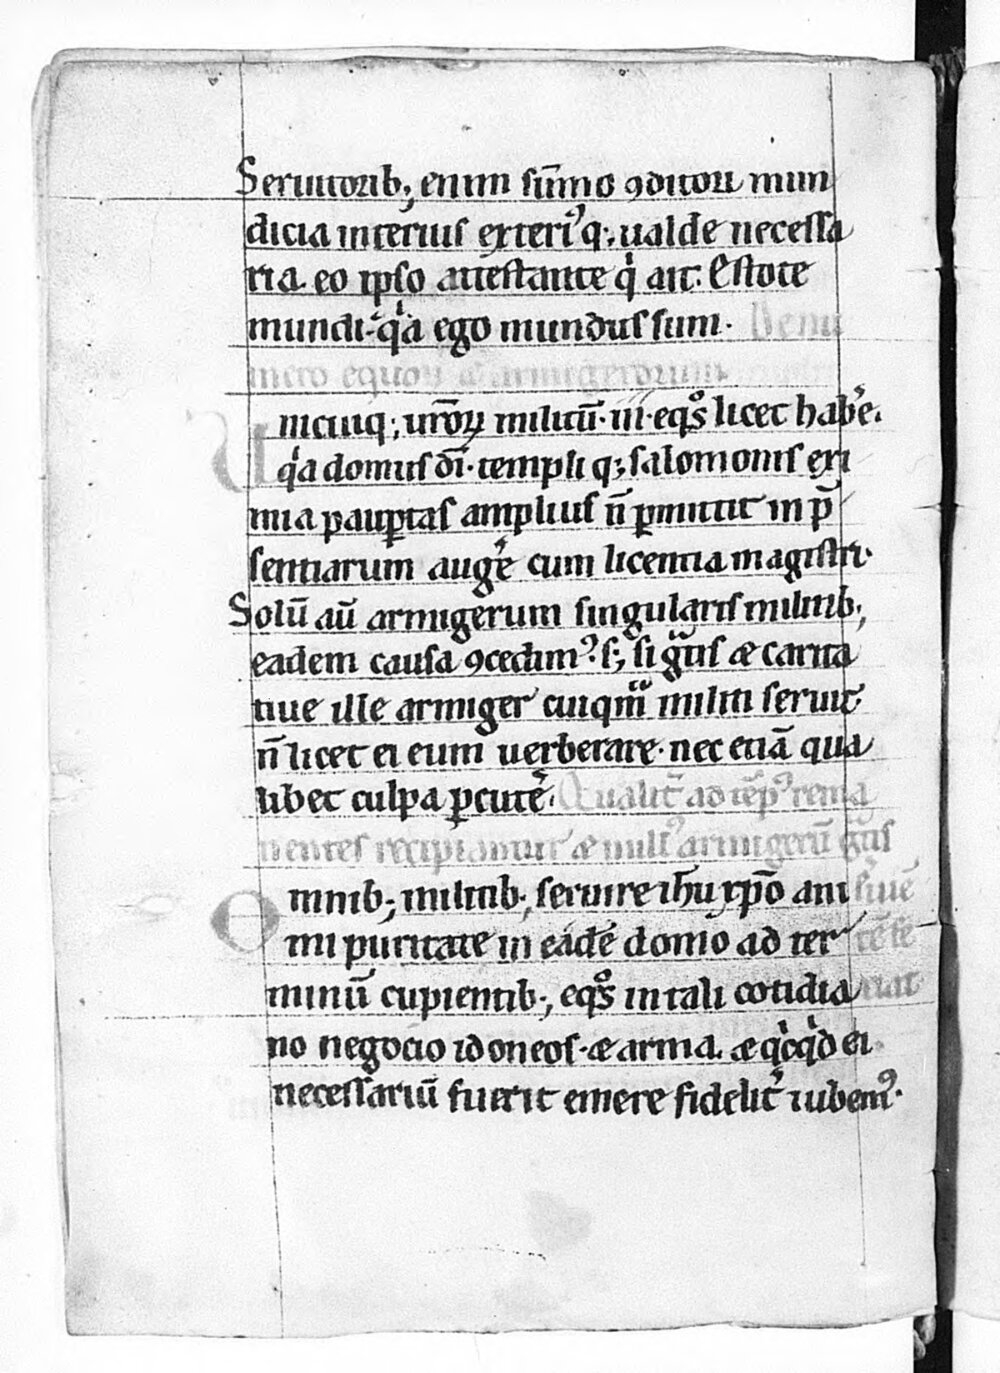 Seruitorib; enim sūmo ꝯditori mun
dicia interius exteriꝰq; ualde necessa
ria. eo ipso attestante qͥ ait: Estote
mundi qͥa ego mundus sum. De nu
mero equoꝝ ⁊ armigerorum
Unicuiq; uroꝝ militū .iii. eqͦs licet habe̾.
qͥa domus dī. templi q; salomonis exi
mia paupꝑtas amplius ñ ꝑmittit inp̄
sentiarum auge̾ cum licentia magistri.
Solū aū armigerum singularis militib;
eadem causa ꝯcedimꝰ. s; si gͣtis æ carita
tiue ille armiger cuiqͣm militi seruit
ñ licet ei eum uerberare. nec etiā qua
libet culpa ꝑcute̾. Qualit̾ ad tēpꝰ rema
nentes recipiantur æ nullꝰ armigerū gͣtis
Omnib; militib; seruire ihū xp̄o ani
mi puritate in eadē domo ad ter
minū cupientib; eqͦs in tali cotidia
no negocio idoneos. æ arma. æ qͥcqͥd ei
necessariū fuerit emere fidelit̾ iubemꝰ.